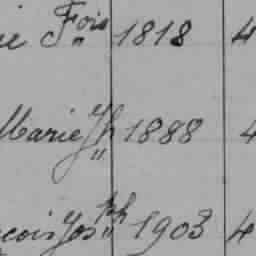 ie Fois 1818 4
Marie Jh 1888 4
çois Josph 1903 4